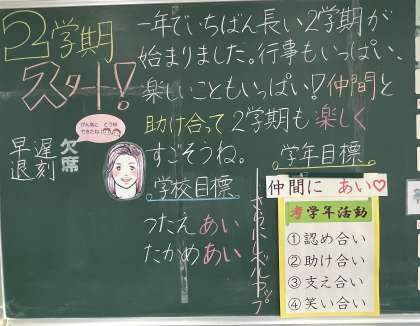 2学期
スタート!
一年でいちばん長い2学期が
始まりました。行事もいっぱい、
楽しいこともいっぱい!仲間と
助け合って2学期も楽しく
すごそうね。
げんきに とうこう
できたね!
早退
遅刻
欠席
学校目標
つたえあい
たかめあい
さらにレベルアップ
学年目標
仲間に あい♡
考学年活動
①認め合い
②助け合い
③支え合い
④笑い合い